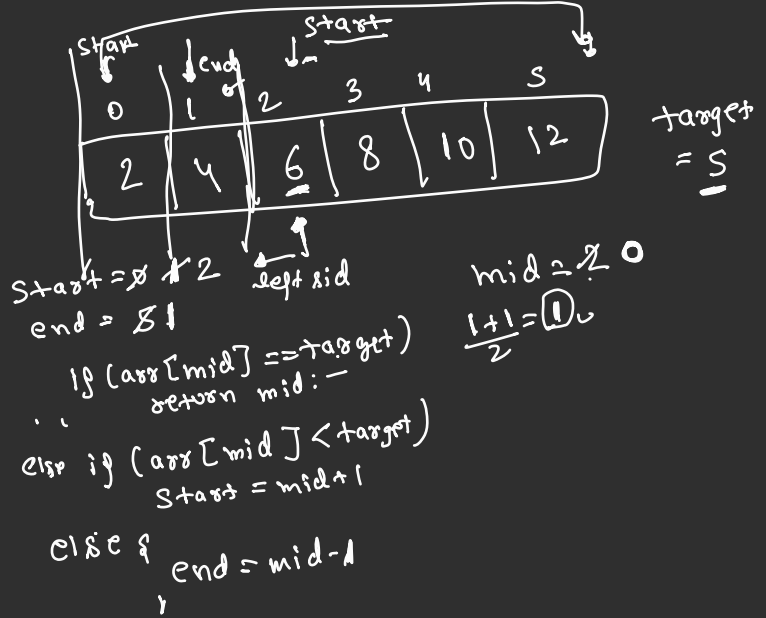 start
start
end
0 1 2 3 4 5
2 4 6 8 10 12
target
= 5
start = 0 1 2
left sid
mid = 2 0
end = 5 1
1+1/2 = 1
if (arr[mid] == target)
return mid;
else if (arr[mid] < target)
start = mid+1
else {
end = mid-1
}